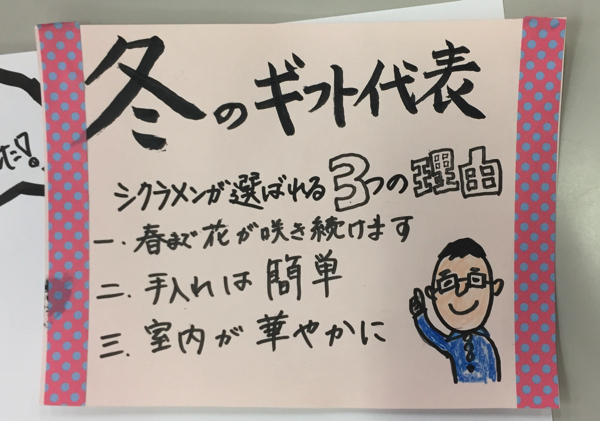 冬のギフト代表
シクラメンが選ばれる3つの理由
一.春まで花が咲き続けます
二.手入れは簡単
三.室内が華やかに
た!。